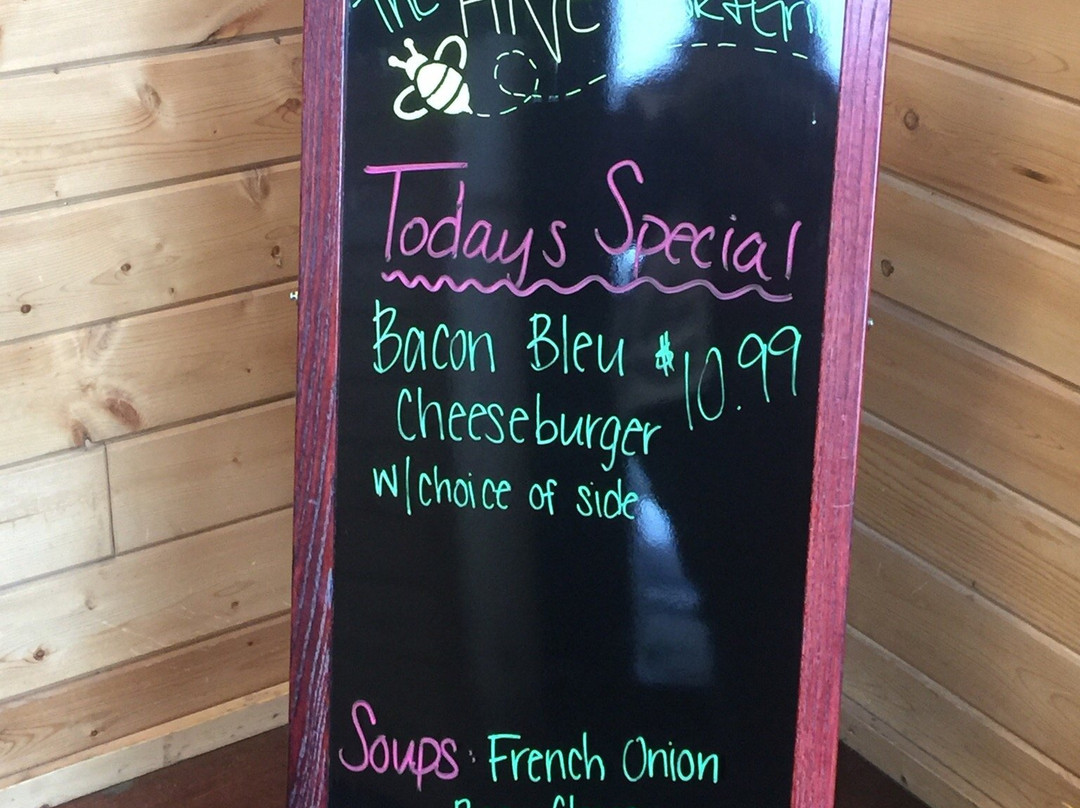 The
Todays Special
Bacon Bleu $10.99
Cheeseburger
w/choice of side
Soups: French Onion